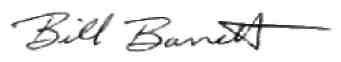 Bill Barrett